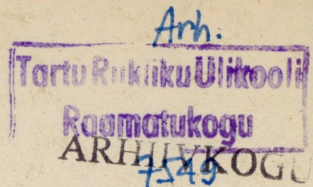 Arh.
Tartu Riikliku Ülikooli
Raamatukogu
ARHIIVKOGU
7549